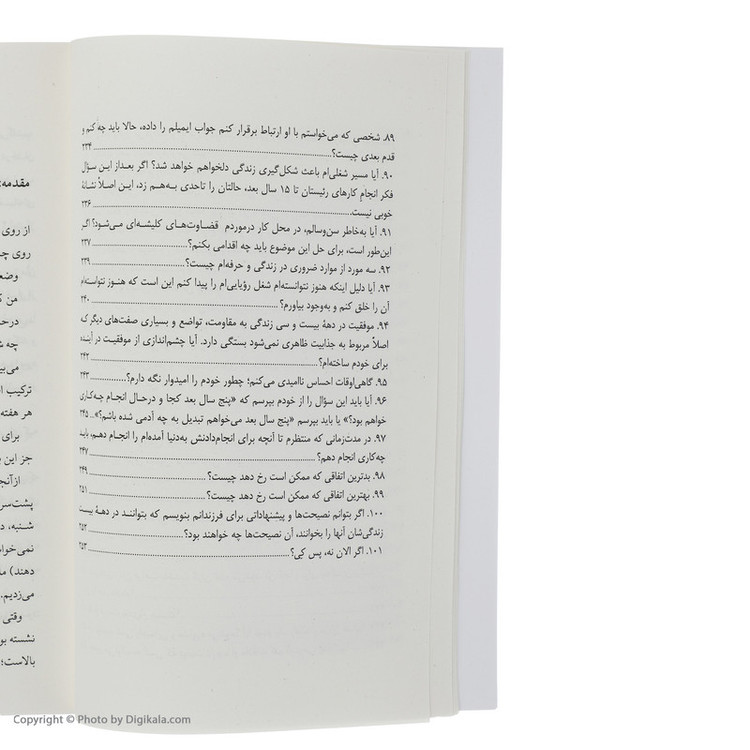 ۸۹. شخصی که می‌خواستم با او ارتباط برقرار کنم جواب ایمیلم را داده، حالا باید چه کنم و
قدم بعدی چیست؟ ۲۳۴
۹۰. آیا مسیر شغلی‌ام باعث شکل‌گیری زندگی دلخواهم خواهد شد؟ اگر بعداز این سؤال
فکر انجام کارهای رئیستان تا ۱۵ سال بعد، حالتان را تاحدی به‌هم زد، این اصلاً نشانهٔ
خوبی نیست. ۲۳۶
۹۱. آیا به‌خاطر سن‌وسالم، در محل کار درموردم قضاوت‌های کلیشه‌ای می‌شود؟ اگر
این‌طور است، برای حل این موضوع باید چه اقدامی بکنم؟ ۲۳۷
۹۲. سه مورد از موارد ضروری در زندگی و حرفه‌ام چیست؟ ۲۳۹
۹۳. آیا دلیل اینکه هنوز نتوانسته‌ام شغل رؤیایی‌ام را پیدا کنم این است که هنوز نتوانسته‌ام
آن را خلق کنم و به‌وجود بیاورم؟ ۲۴۰
۹۴. موفقیت در دههٔ بیست و سی زندگی به مقاومت، تواضع و بسیاری صفت‌های دیگر که
اصلاً مربوط به جذابیت ظاهری نمی‌شود بستگی دارد. آیا چشم‌اندازی از موفقیت در آینده
برای خودم ساخته‌ام؟ ۲۴۲
۹۵. گاهی‌اوقات احساس ناامیدی می‌کنم؛ چطور خودم را امیدوار نگه دارم؟ ۲۴۳
۹۶. آیا باید این سؤال را از خودم بپرسم که «پنج سال بعد کجا و درحال انجام چه‌کاری
خواهم بود؟» یا باید بپرسم «پنج سال بعد می‌خواهم تبدیل به چه آدمی شده باشم؟» ۲۴۵
۹۷. در مدت‌زمانی که منتظرم تا آنچه برای انجام‌دادنش به‌دنیا آمده‌ام را انجام دهم، باید
چه‌کاری انجام دهم؟ ۲۴۷
۹۸. بدترین اتفاقی که ممکن است رخ دهد چیست؟ ۲۴۹
۹۹. بهترین اتفاقی که ممکن است رخ دهد چیست؟ ۲۵۱
۱۰۰. اگر بتوانم نصیحت‌ها و پیشنهاداتی برای فرزندانم بنویسم که بتوانند در دههٔ بیست
زندگی‌شان آنها را بخوانند، آن نصیحت‌ها چه خواهند بود؟ ۲۵۲
۱۰۱. اگر الان نه، پس کِی؟ ۲۵۳
مقدمه:
از روی
روی چ
وضع
من ک
درحا
چه ش
می‌بی
ترکیب ا
هر هفته
برای
جز این
ازآنج
پشت‌سر
شنبه، د
نمی‌خوا
دهند) ما
می‌زدیم.
وقتی
نشسته بو
بالاست؛
Copyright © Photo by Digikala.com